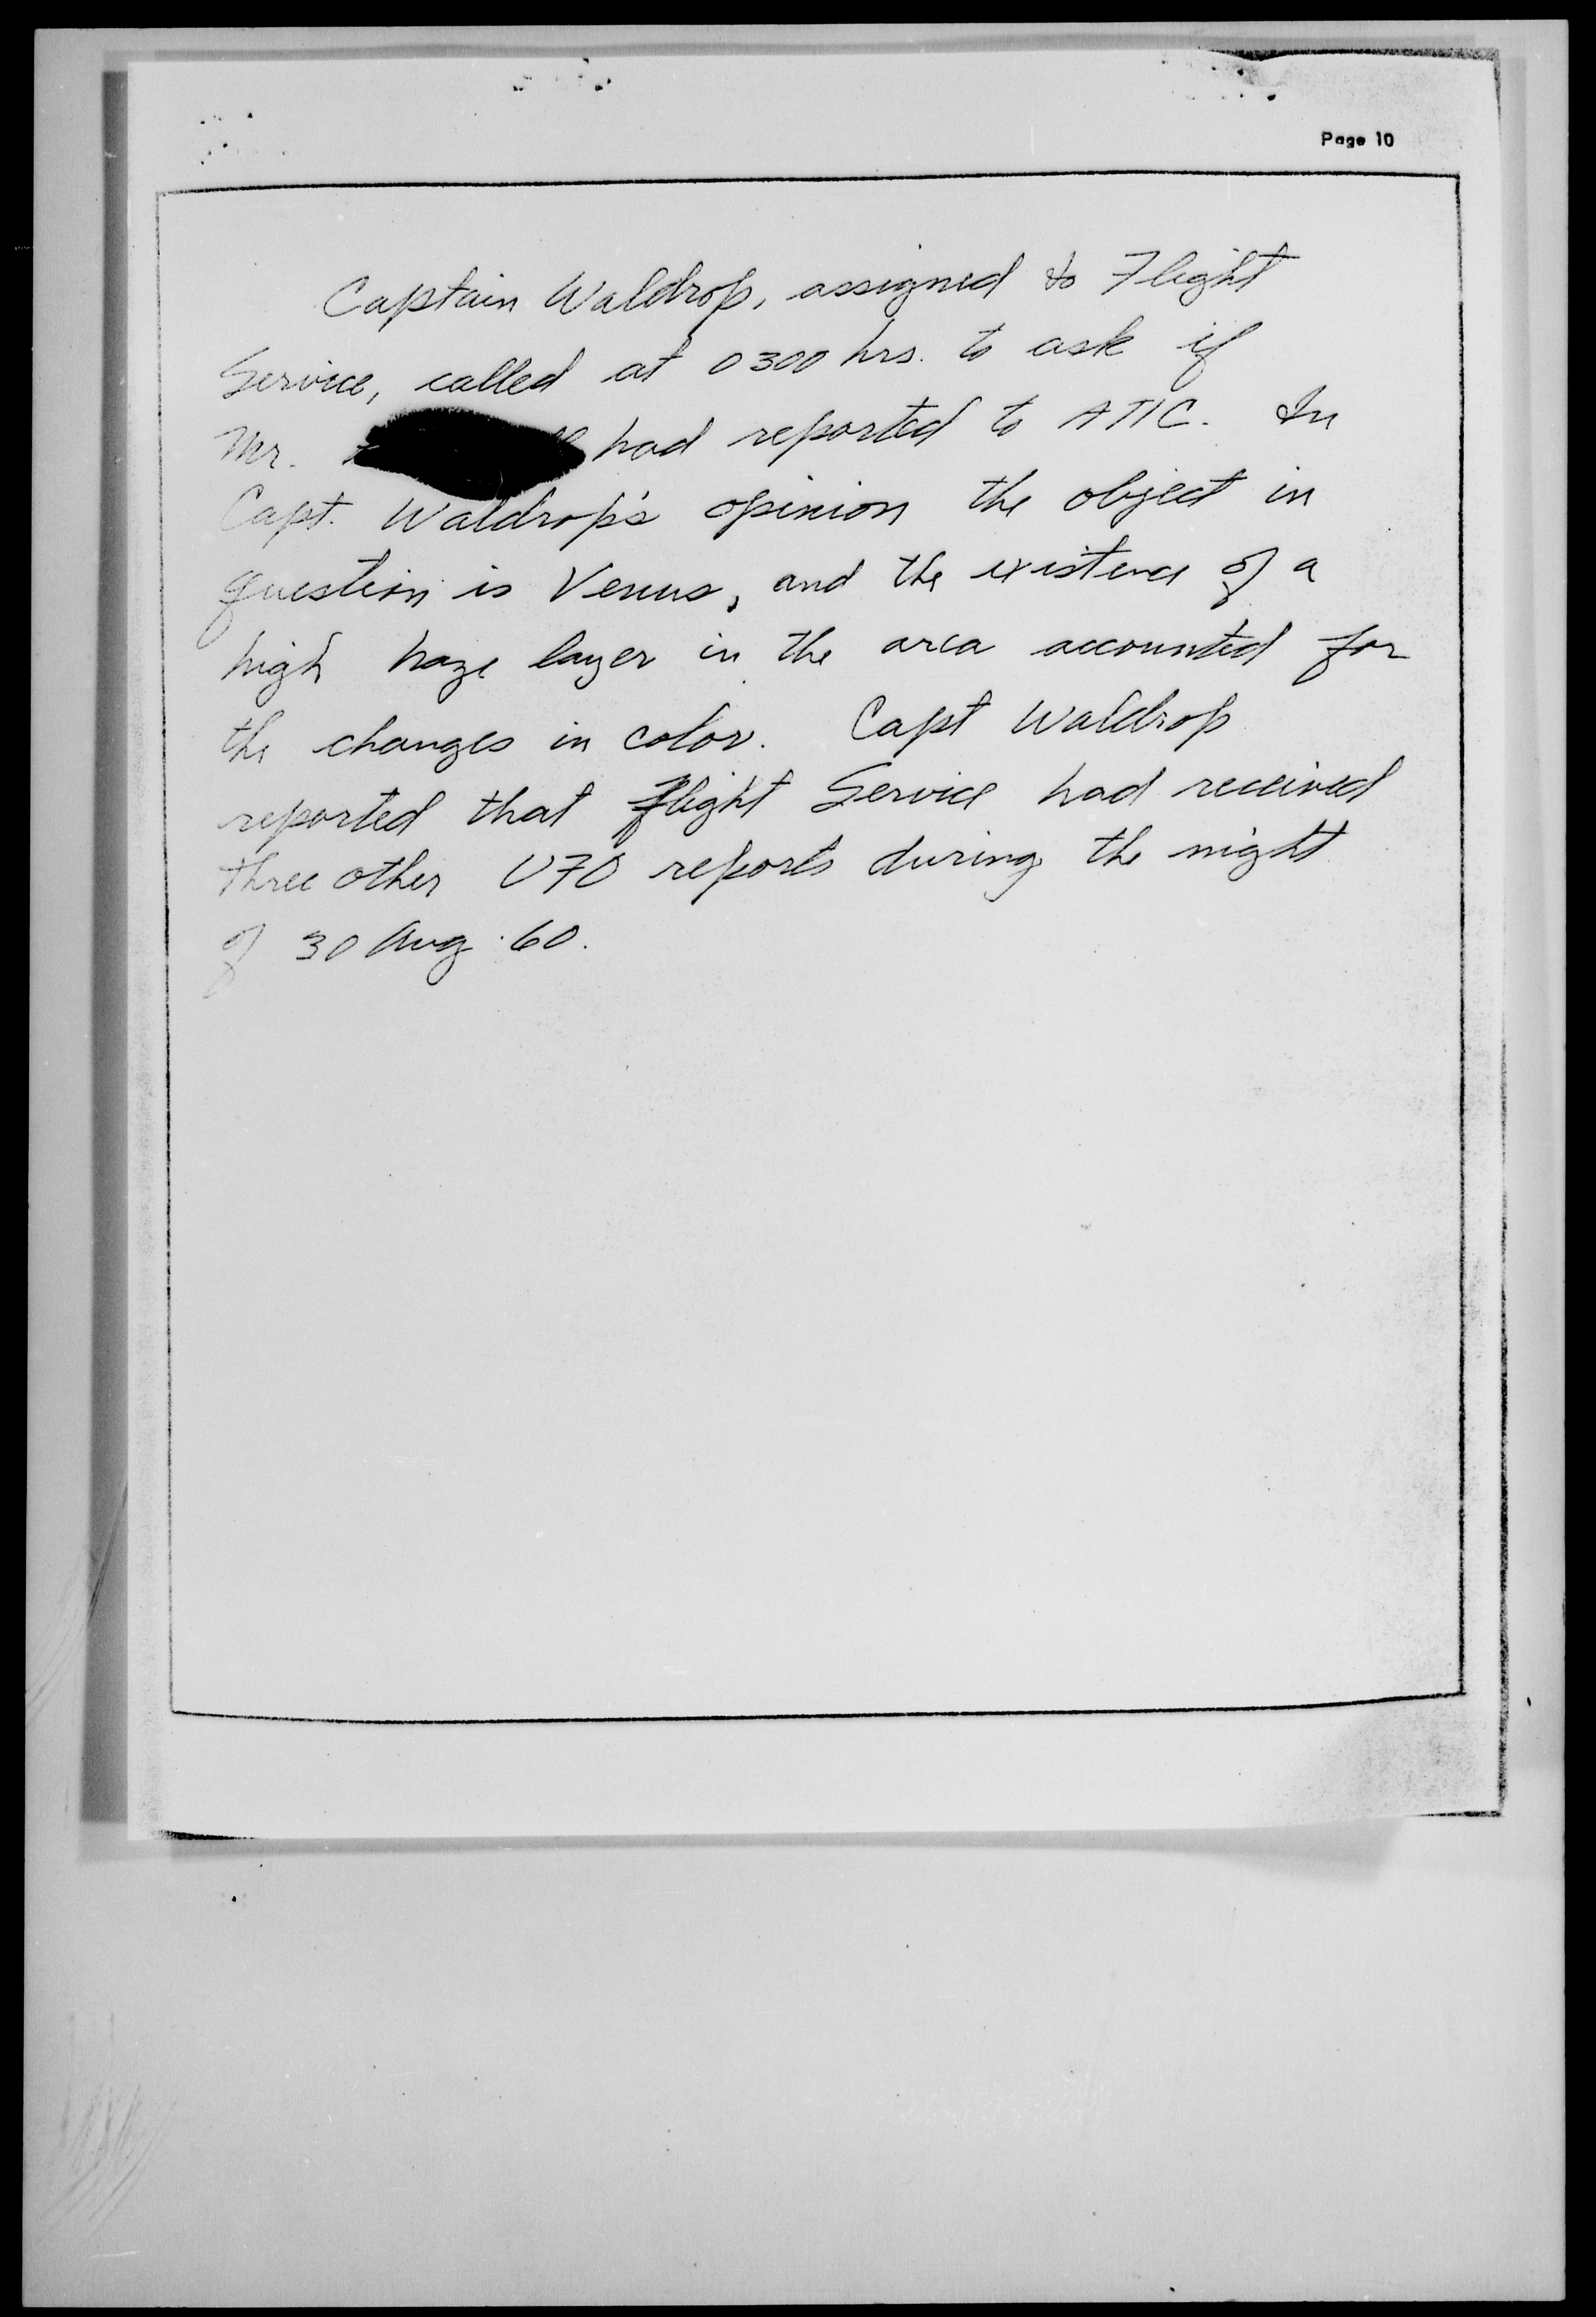 Page 10
Captain Waldrop, assigned to Flight
Service, called at 0300 hrs. to ask if
Mr. had reported to ATIC. In
Capt. Waldrop's opinion the object in
question is Venus, and the existence of a
high haze layer in the area accounted for
the changes in color. Capt Waldrop
reported that Flight Service had received
three other UFO reports during the night
of 30 Aug 60.